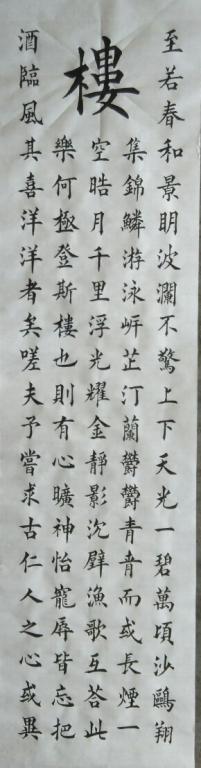 樓
至若春和景明波瀾不驚上下天光一碧萬頃沙鷗翔
集錦鱗游泳岸芷汀蘭鬱鬱青青而或長煙一
空皓月千里浮光耀金靜影沈璧漁歌互荅此
樂何極登斯樓也則有心曠神怡寵辱皆忘把
酒臨風其喜洋洋者矣嗟夫予嘗求古仁人之心或異